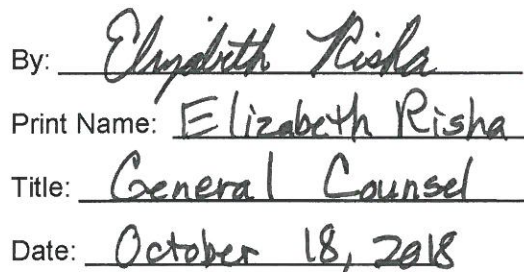 By: Elizabeth Risha
Print Name: Elizabeth Risha
Title: General Counsel
Date: October 18, 2018